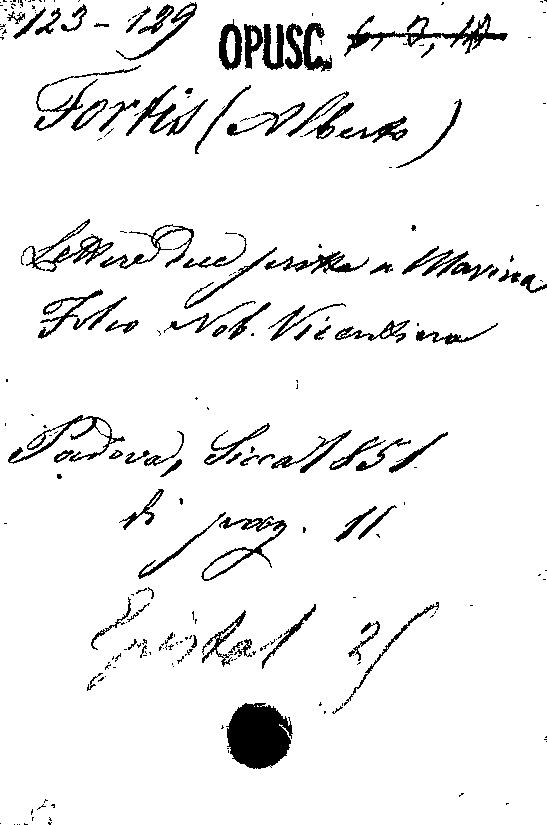 123-129 OPUSC. 6, 7, 10
Fortis (Alberto)
Lettere due scritte a Marina
Folio Nob. Vicentina
Padova, Sicca 1851.
di pag. 11.
Epistol 25